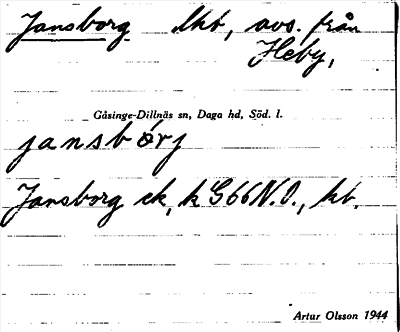 Jansborg lht, avs. från
Heby,
Gåsinge-Dillnäs sn, Daga hd, Söd. l.
jansbórj
Jansborg ek, k G66N.O., kt.
Artur Olsson 1944